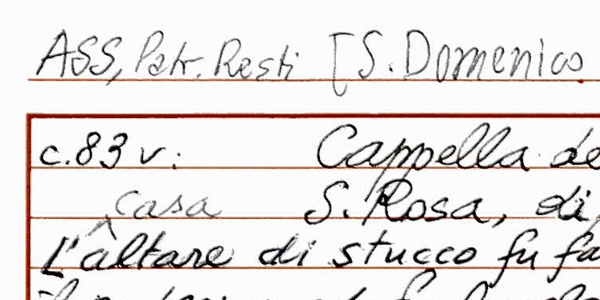 ASS, Patr. Resti [S. Domenico
c. 83 v: Cappella de
casa S. Rosa, di
L'altare di stucco fu fa
il